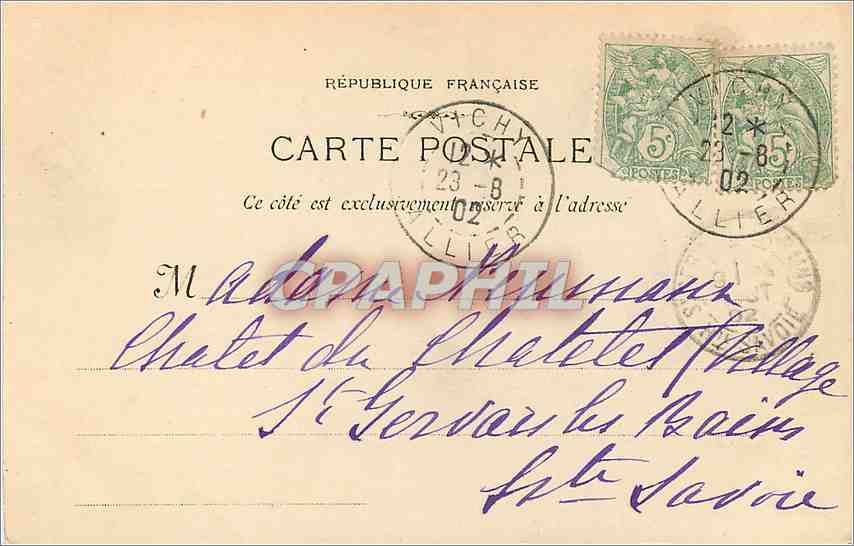 RÉPUBLIQUE FRANÇAISE
CARTE POSTALE
Ce côté est exclusivement réservé à l'adresse
5c
POSTES
5c
POSTES
VICHY
12 *
23 -8
02
ALLIER
VICHY
12 *
23 -8
02
ALLIER
SAVOIE
CPAPHIL
Madame Neumann
Chalet du Chatelet (Village
St Gervais les Bains
Hte Savoie